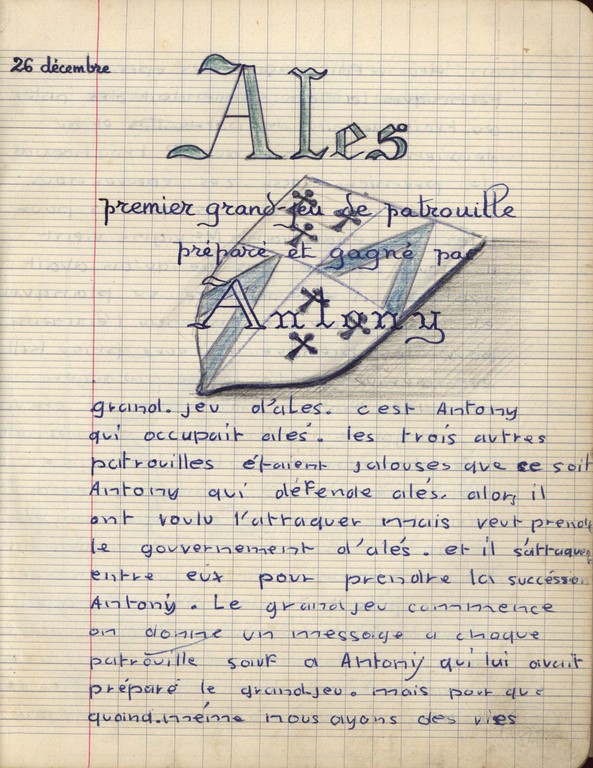 26 décembre
Ales
premier grand-jeu de patrouille
préparé et gagné par
Antony
grand. jeu d'ales. c'est Antony
qui occupait alés. les trois autres
patrouilles étaient jalouses que ce soit
Antony qui défende alés. alors il
ont voulu l'attaquer mais veut prendre
le gouvernement d'alés. et il s'attaquent
entre eux pour prendre la succession
Antony. Le grand jeu commence
on donne un message a chaque
patrouille sauf a Antony qui lui avait
préparé le grand jeu. mais pour que
quand.même nous ayons des vies